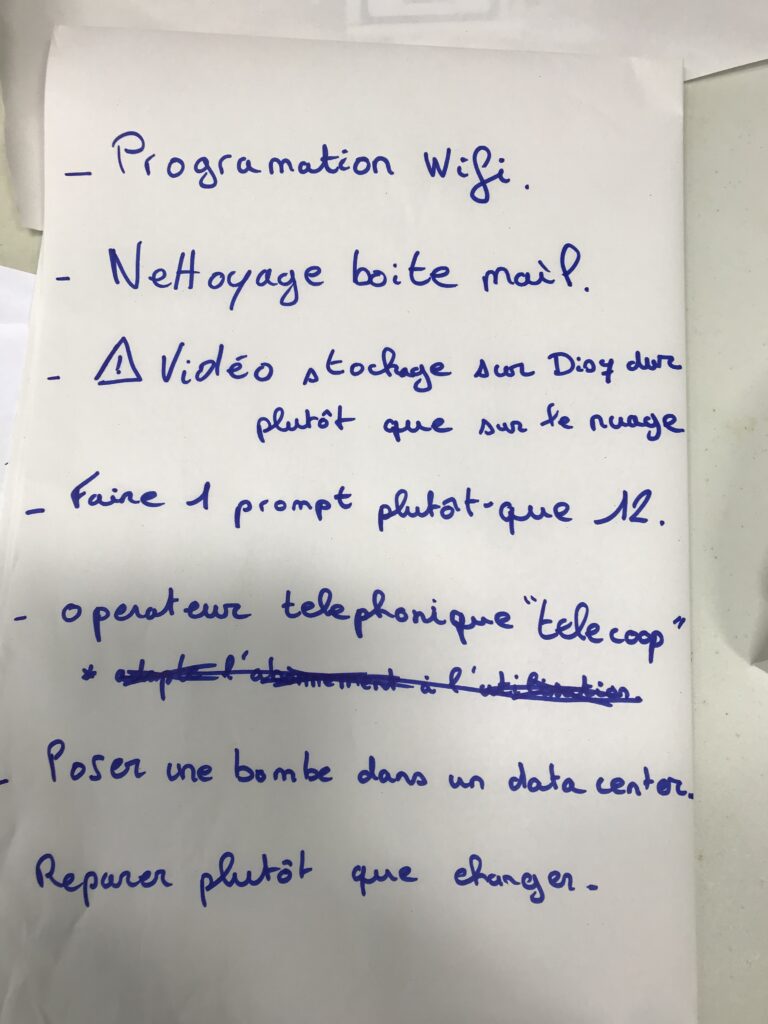 - Programation Wifi.
- Nettoyage boite mail.
- ⚠ Vidéo stockage sur Disq dur
plutôt que sur le nuage
- Faire 1 prompt plutôt que 12.
- operateur telephonique "telecoop"
* adapté l'abonnement à l'utilisation.
- Poser une bombe dans un data center.
Reparer plutôt que changer.